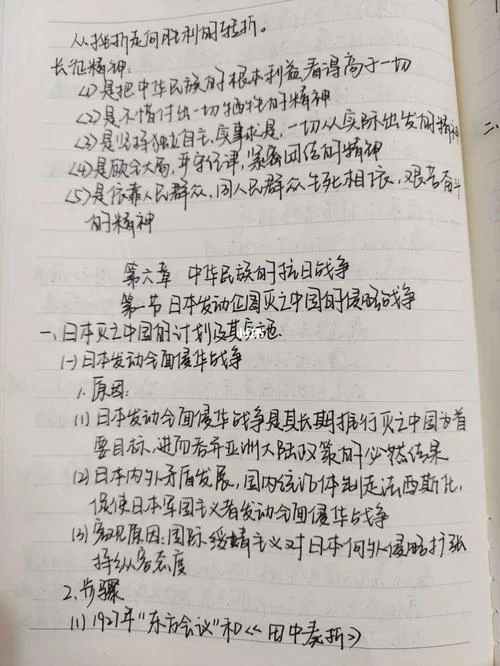 从挫折走向胜利的转折。
长征精神:
(1)是把中华民族的根本利益看得高于一切
(2)是不惜付出一切牺牲的精神
(3)是坚持独立自主,实事求是,一切从实际出发的精神
(4)是顾全大局,严守纪律,紧密团结的精神
(5)是依靠人民群众,同人民群众生死相依,艰苦奋斗
的精神
第六章 中华民族的抗日战争
第一节 日本发动企图灭亡中国的侵略战争
一、日本灭亡中国的计划及其实施
(一)日本发动全面侵华战争
1.原因:
(1)日本发动全面侵华战争是其长期推行灭亡中国为首
要目标,进而吞并亚洲大陆政策的必然结果
(2)日本内外矛盾发展,国内统治体制走法西斯化,
促使日本军国主义者发动全面侵华战争
(3)客观原因:国际绥靖主义对日本向外侵略扩张
持纵容态度
2.步骤
(1)1927年"东方会议"和《田中奏折》
二